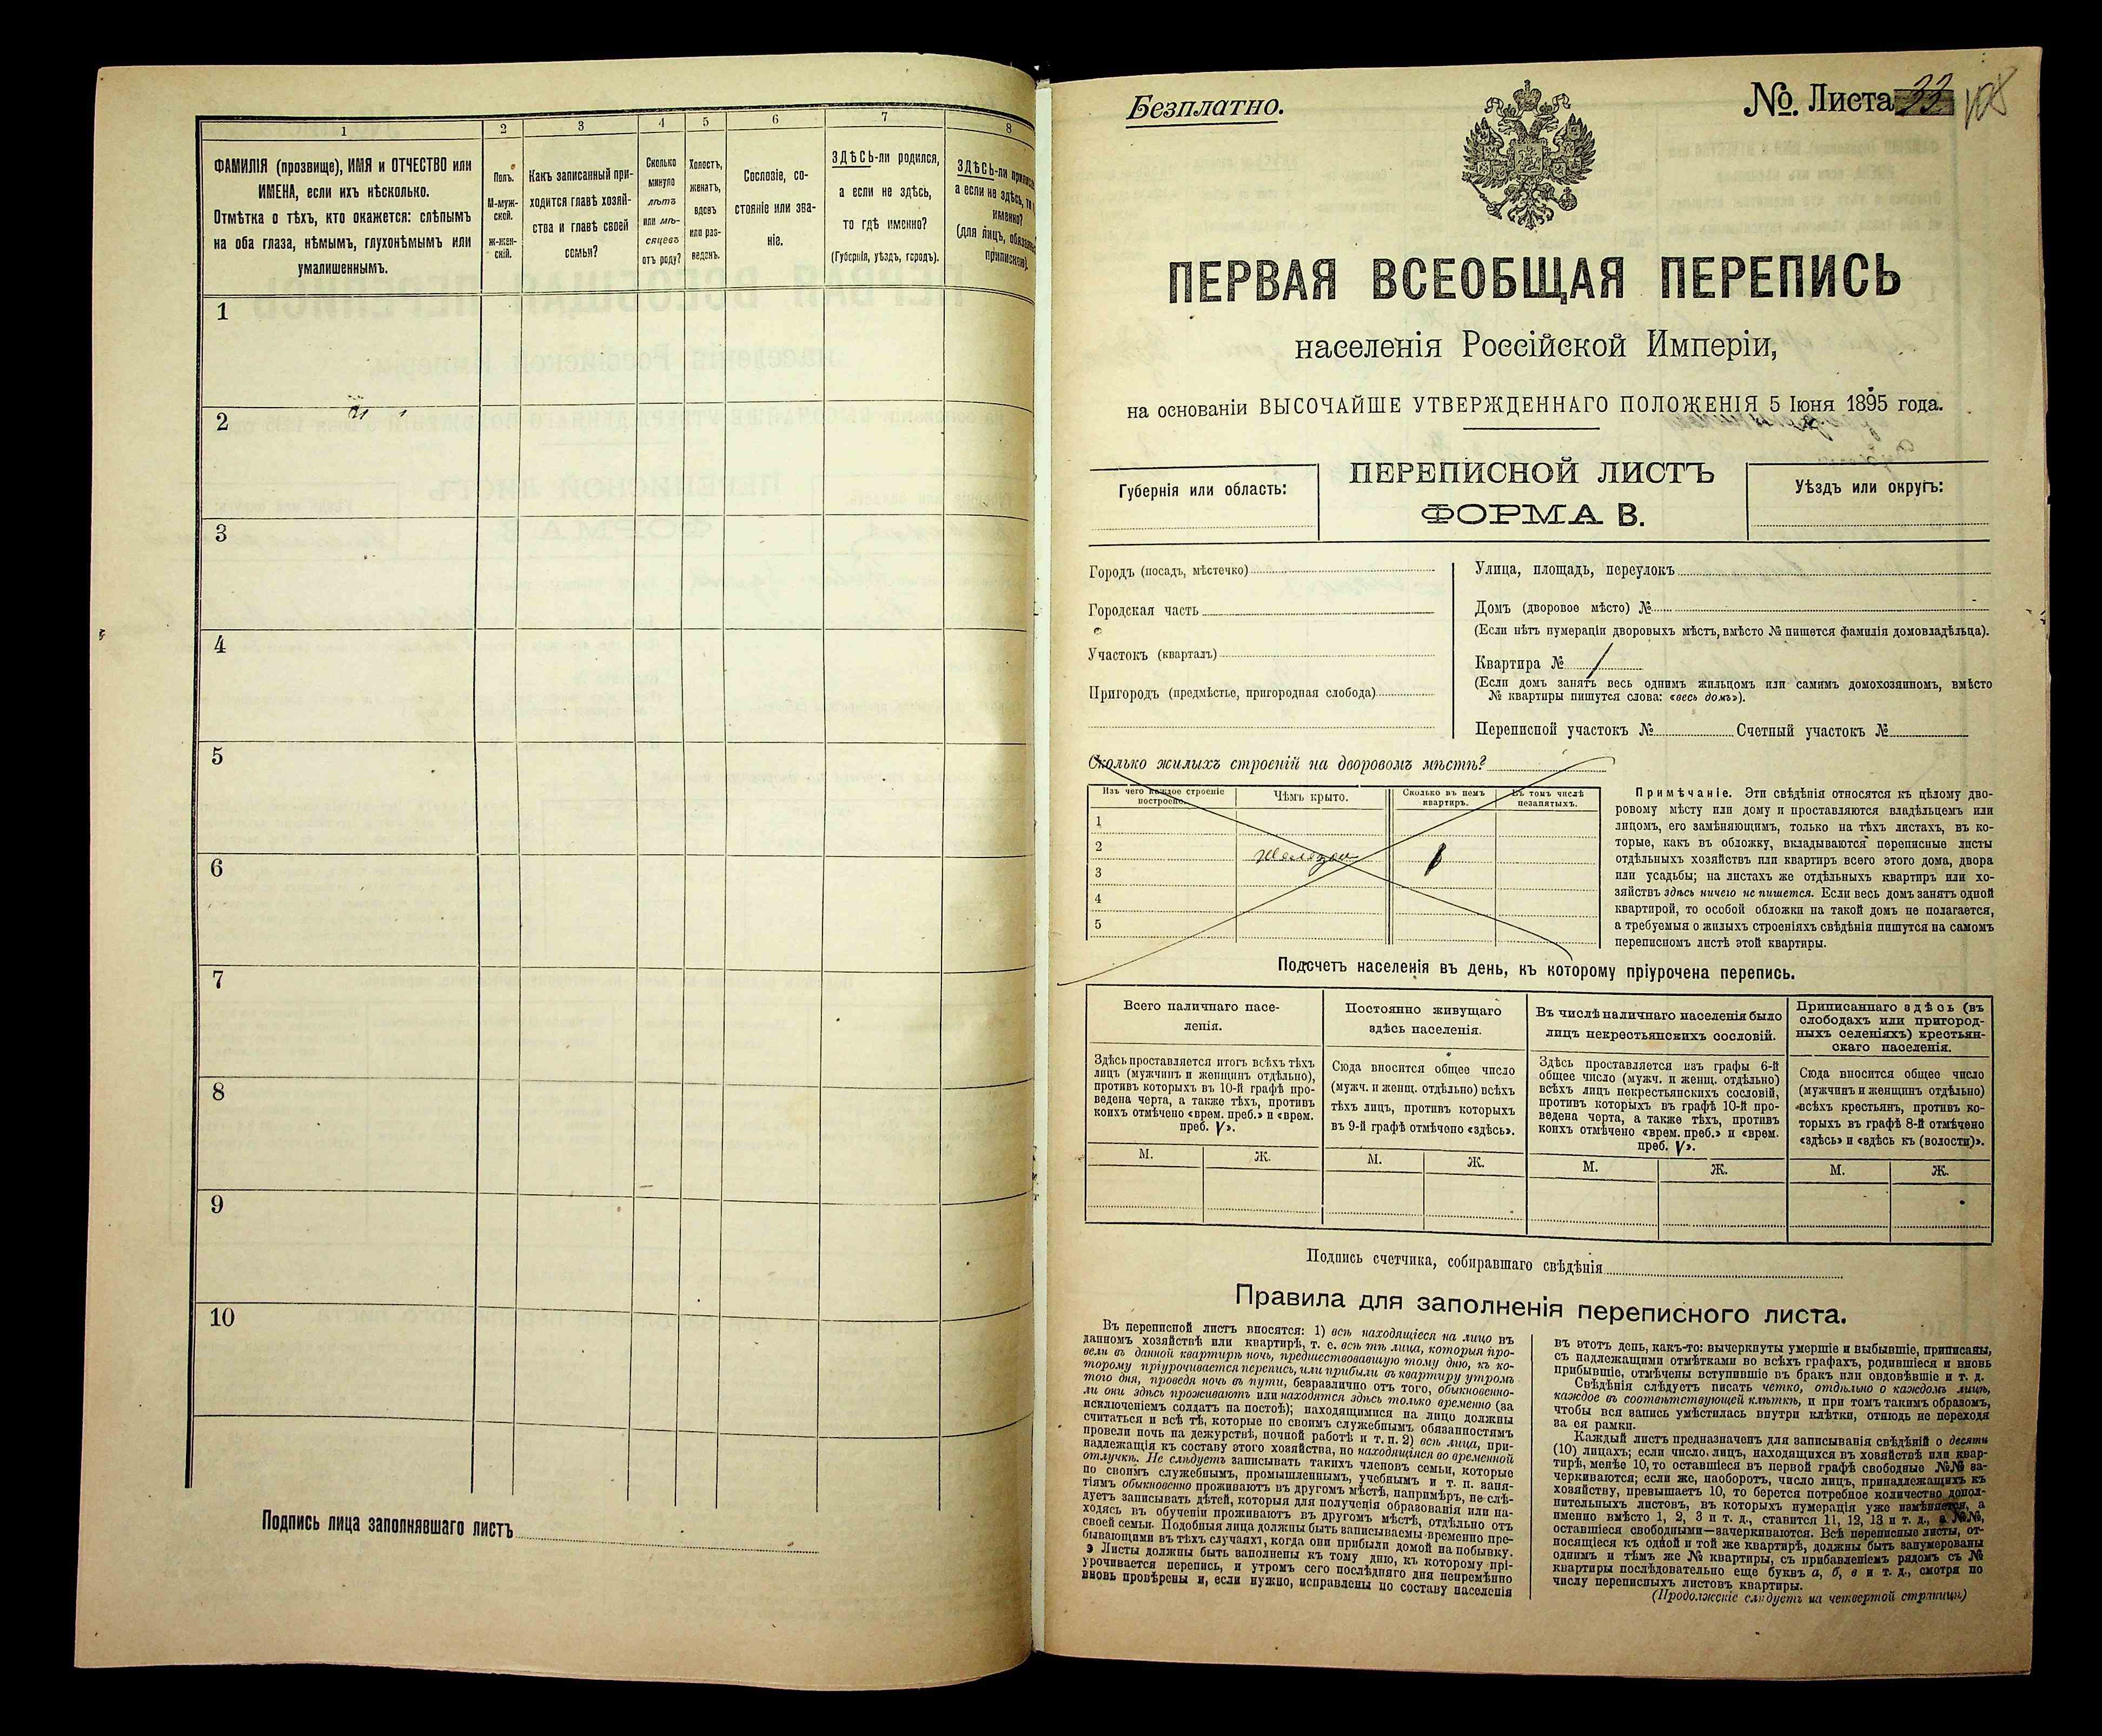 1
2
3
4
5
6
7
8
ФАМИЛІЯ (прозвище), ИМЯ и ОТЧЕСТВО или
ИМЕНА, если ихъ нѣсколько.
Отмѣтка о тѣхъ, кто окажется: слѣпымъ
на оба глаза, нѣмымъ, глухонѣмымъ или
умалишеннымъ.
Полъ.
М-муж-
ской.
ж-жен-
скій.
Какъ записанный при-
ходится главѣ хозяй-
ства и главѣ своей
семьи?
Сколько
минуло
лѣтъ
или мѣ-
сяцевъ
отъ роду?
Холостъ,
женатъ,
вдовъ
или раз-
веденъ.
Сословіе, со-
стояніе или зва-
ніе.
ЗДѢСЬ-ли родился,
а если не здѣсь,
то гдѣ именно?
(Губернія, уѣздъ, городъ).
ЗДѢСЬ-ли
а если не здѣсь,
именно?
(для лицъ,
1
2
3
4
5
6
7
8
9
10
Подпись лица заполнявшаго листъ
Безплатно.
№ Листа 33 108
ПЕРВАЯ ВСЕОБЩАЯ ПЕРЕПИСЬ
населенія Россійской Имперіи,
на основаніи ВЫСОЧАЙШЕ УТВЕРЖДЕННАГО ПОЛОЖЕНІЯ 5 Іюня 1895 года.
Губернія или область:
ПЕРЕПИСНОЙ ЛИСТЪ
ФОРМА В.
Уѣздъ или округъ:
Городъ (посадъ, мѣстечко)
Городская часть
Участокъ (кварталъ)
Пригородъ (предмѣстье, пригородная слобода)
Улица, площадь, переулокъ
Домъ (дворовое мѣсто) №
(Если нѣтъ нумераціи дворовыхъ мѣстъ, вмѣсто № пишется фамилія домовладѣльца).
Квартира № 1
(Если домъ занятъ весь однимъ жильцомъ или самимъ домохозяиномъ, вмѣсто
№ квартиры пишутся слова: «весь домъ»).
Переписной участокъ № Счетный участокъ №
Сколько жилыхъ строеній на дворовомъ мѣстѣ?
Изъ чего каждое строеніе
построено.
Чѣмъ крыто.
Сколько въ немъ
квартиръ.
Въ томъ числѣ
незапятыхъ.
1
2
3
4
5
1
Примѣчаніе. Эти свѣдѣнія относятся къ цѣлому дво-
ровому мѣсту или дому и проставляются владѣльцемъ или
лицомъ, его замѣняющимъ, только на тѣхъ листахъ, въ ко-
торые, какъ въ обложку, вкладываются переписные листы
отдѣльныхъ хозяйствъ или квартиръ всего этого дома, двора
или усадьбы; на листахъ же отдѣльныхъ квартиръ или хо-
зяйствъ здѣсь ничего не пишется. Если весь домъ занятъ одной
квартирой, то особой обложки на такой домъ не полагается,
а требуемыя о жилыхъ строеніяхъ свѣдѣнія пишутся на самомъ
переписномъ листѣ этой квартиры.
Подсчетъ населенія въ день, къ которому пріурочена перепись.
Всего наличнаго насе-
ленія.
Здѣсь проставляется итогъ всѣхъ тѣхъ
лицъ (мужчинъ и женщинъ отдѣльно),
противъ которыхъ въ 10-й графѣ про-
ведена черта, а также тѣхъ, противъ
коихъ отмѣчено «врем. преб.» и «врем.
преб. V».
Постоянно живущаго
здѣсь населенія.
Сюда вносится общее число
(мужч. и женщ. отдѣльно) всѣхъ
тѣхъ лицъ, противъ которыхъ
въ 9-й графѣ отмѣчено «здѣсь».
Въ числѣ наличнаго населенія было
лицъ некрестьянскихъ сословій.
Здѣсь проставляется изъ графы 6-й
общее число (мужч. и женщ. отдѣльно)
всѣхъ лицъ некрестьянскихъ сословій,
противъ которыхъ въ графѣ 10-й про-
ведена черта, а также тѣхъ, противъ
коихъ отмѣчено «врем. преб.» и «врем.
преб. V».
Приписаннаго здѣсь (въ
слободахъ или пригород-
ныхъ селеніяхъ) крестьян-
скаго населенія.
Сюда вносится общее число
(мужчинъ и женщинъ отдѣльно)
всѣхъ крестьянъ, противъ ко-
торыхъ въ графѣ 8-й отмѣчено
«здѣсь» и «здѣсь къ (волости)».
М. Ж. М. Ж. М. Ж. М. Ж.
Подпись счетчика, собиравшаго свѣдѣнія
Правила для заполненія переписного листа.
Въ переписной листъ вносятся: 1) всѣ находящіеся на лицо въ
данномъ хозяйствѣ или квартирѣ, т. е. всѣ тѣ лица, которыя про-
вели въ данной квартирѣ ночь, предшествовавшую тому дню, къ ко-
торому пріурочивается перепись, или прибыли въ квартиру утромъ
того дня, проведя ночь въ пути, безразлично отъ того, обыкновенно-
ли они здѣсь проживаютъ или находятся здѣсь только временно (за
исключеніемъ солдатъ на постоѣ); находящимися на лицо должны
считаться и всѣ тѣ, которые по своимъ служебнымъ обязанностямъ
провели ночь на дежурствѣ, ночной работѣ и т. п. 2) всѣ лица, при-
надлежащія къ составу этого хозяйства, но находящіяся во временной
отлучкѣ. Не слѣдуетъ записывать такихъ членовъ семьи, которые
по своимъ служебнымъ, промышленнымъ, учебнымъ и т. п. заня-
тіямъ обыкновенно проживаютъ въ другомъ мѣстѣ, напримѣръ, не слѣ-
дуетъ записывать дѣтей, которыя для полученія образованія или на-
ходясь въ обученіи проживаютъ въ другомъ мѣстѣ, отдѣльно отъ
своей семьи. Подобныя лица должны быть записываемы временно пре-
бывающими въ тѣхъ случаяхъ, когда они прибыли домой на побывку.
Листы должны быть заполнены къ тому дню, къ которому прі-
урочивается перепись, и утромъ сего послѣдняго дня непремѣнно
вновь провѣрены и, если нужно, исправлены по составу населенія
въ этотъ день, какъ-то: вычеркнуты умершіе и выбывшіе, приписаны,
съ надлежащими отмѣтками во всѣхъ графахъ, родившіеся и вновь
прибывшіе, отмѣчены вступившіе въ бракъ или овдовѣвшіе и т. д.
Свѣдѣнія слѣдуетъ писать четко, отдѣльно о каждомъ лицѣ,
каждое въ соотвѣтствующей клѣткѣ, и при томъ такимъ образомъ,
чтобы вся запись умѣстилась внутри клѣтки, отнюдь не переходя
за ея рамки.
Каждый листъ предназначенъ для записыванія свѣдѣній о десяти
(10) лицахъ; если число лицъ, находящихся въ хозяйствѣ или квар-
тирѣ, менѣе 10, то оставшіеся въ первой графѣ свободные №№ за-
черкиваются; если же, наоборотъ, число лицъ, принадлежащихъ къ
хозяйству, превышаетъ 10, то берется потребное количество допол-
нительныхъ листовъ, въ которыхъ нумерація уже измѣняется, а
именно вмѣсто 1, 2, 3 и т. д., ставится 11, 12, 13 и т. д., а №№,
оставшіеся свободными—зачеркиваются. Всѣ переписные листы, от-
носящіеся къ одной и той же квартирѣ, должны быть занумерованы
однимъ и тѣмъ же № квартиры, съ прибавленіемъ рядомъ съ №
квартиры послѣдовательно еще буквъ а, б, в и т. д., смотря по
числу переписныхъ листовъ квартиры.
(Продолженіе слѣдуетъ на четвертой страницѣ)